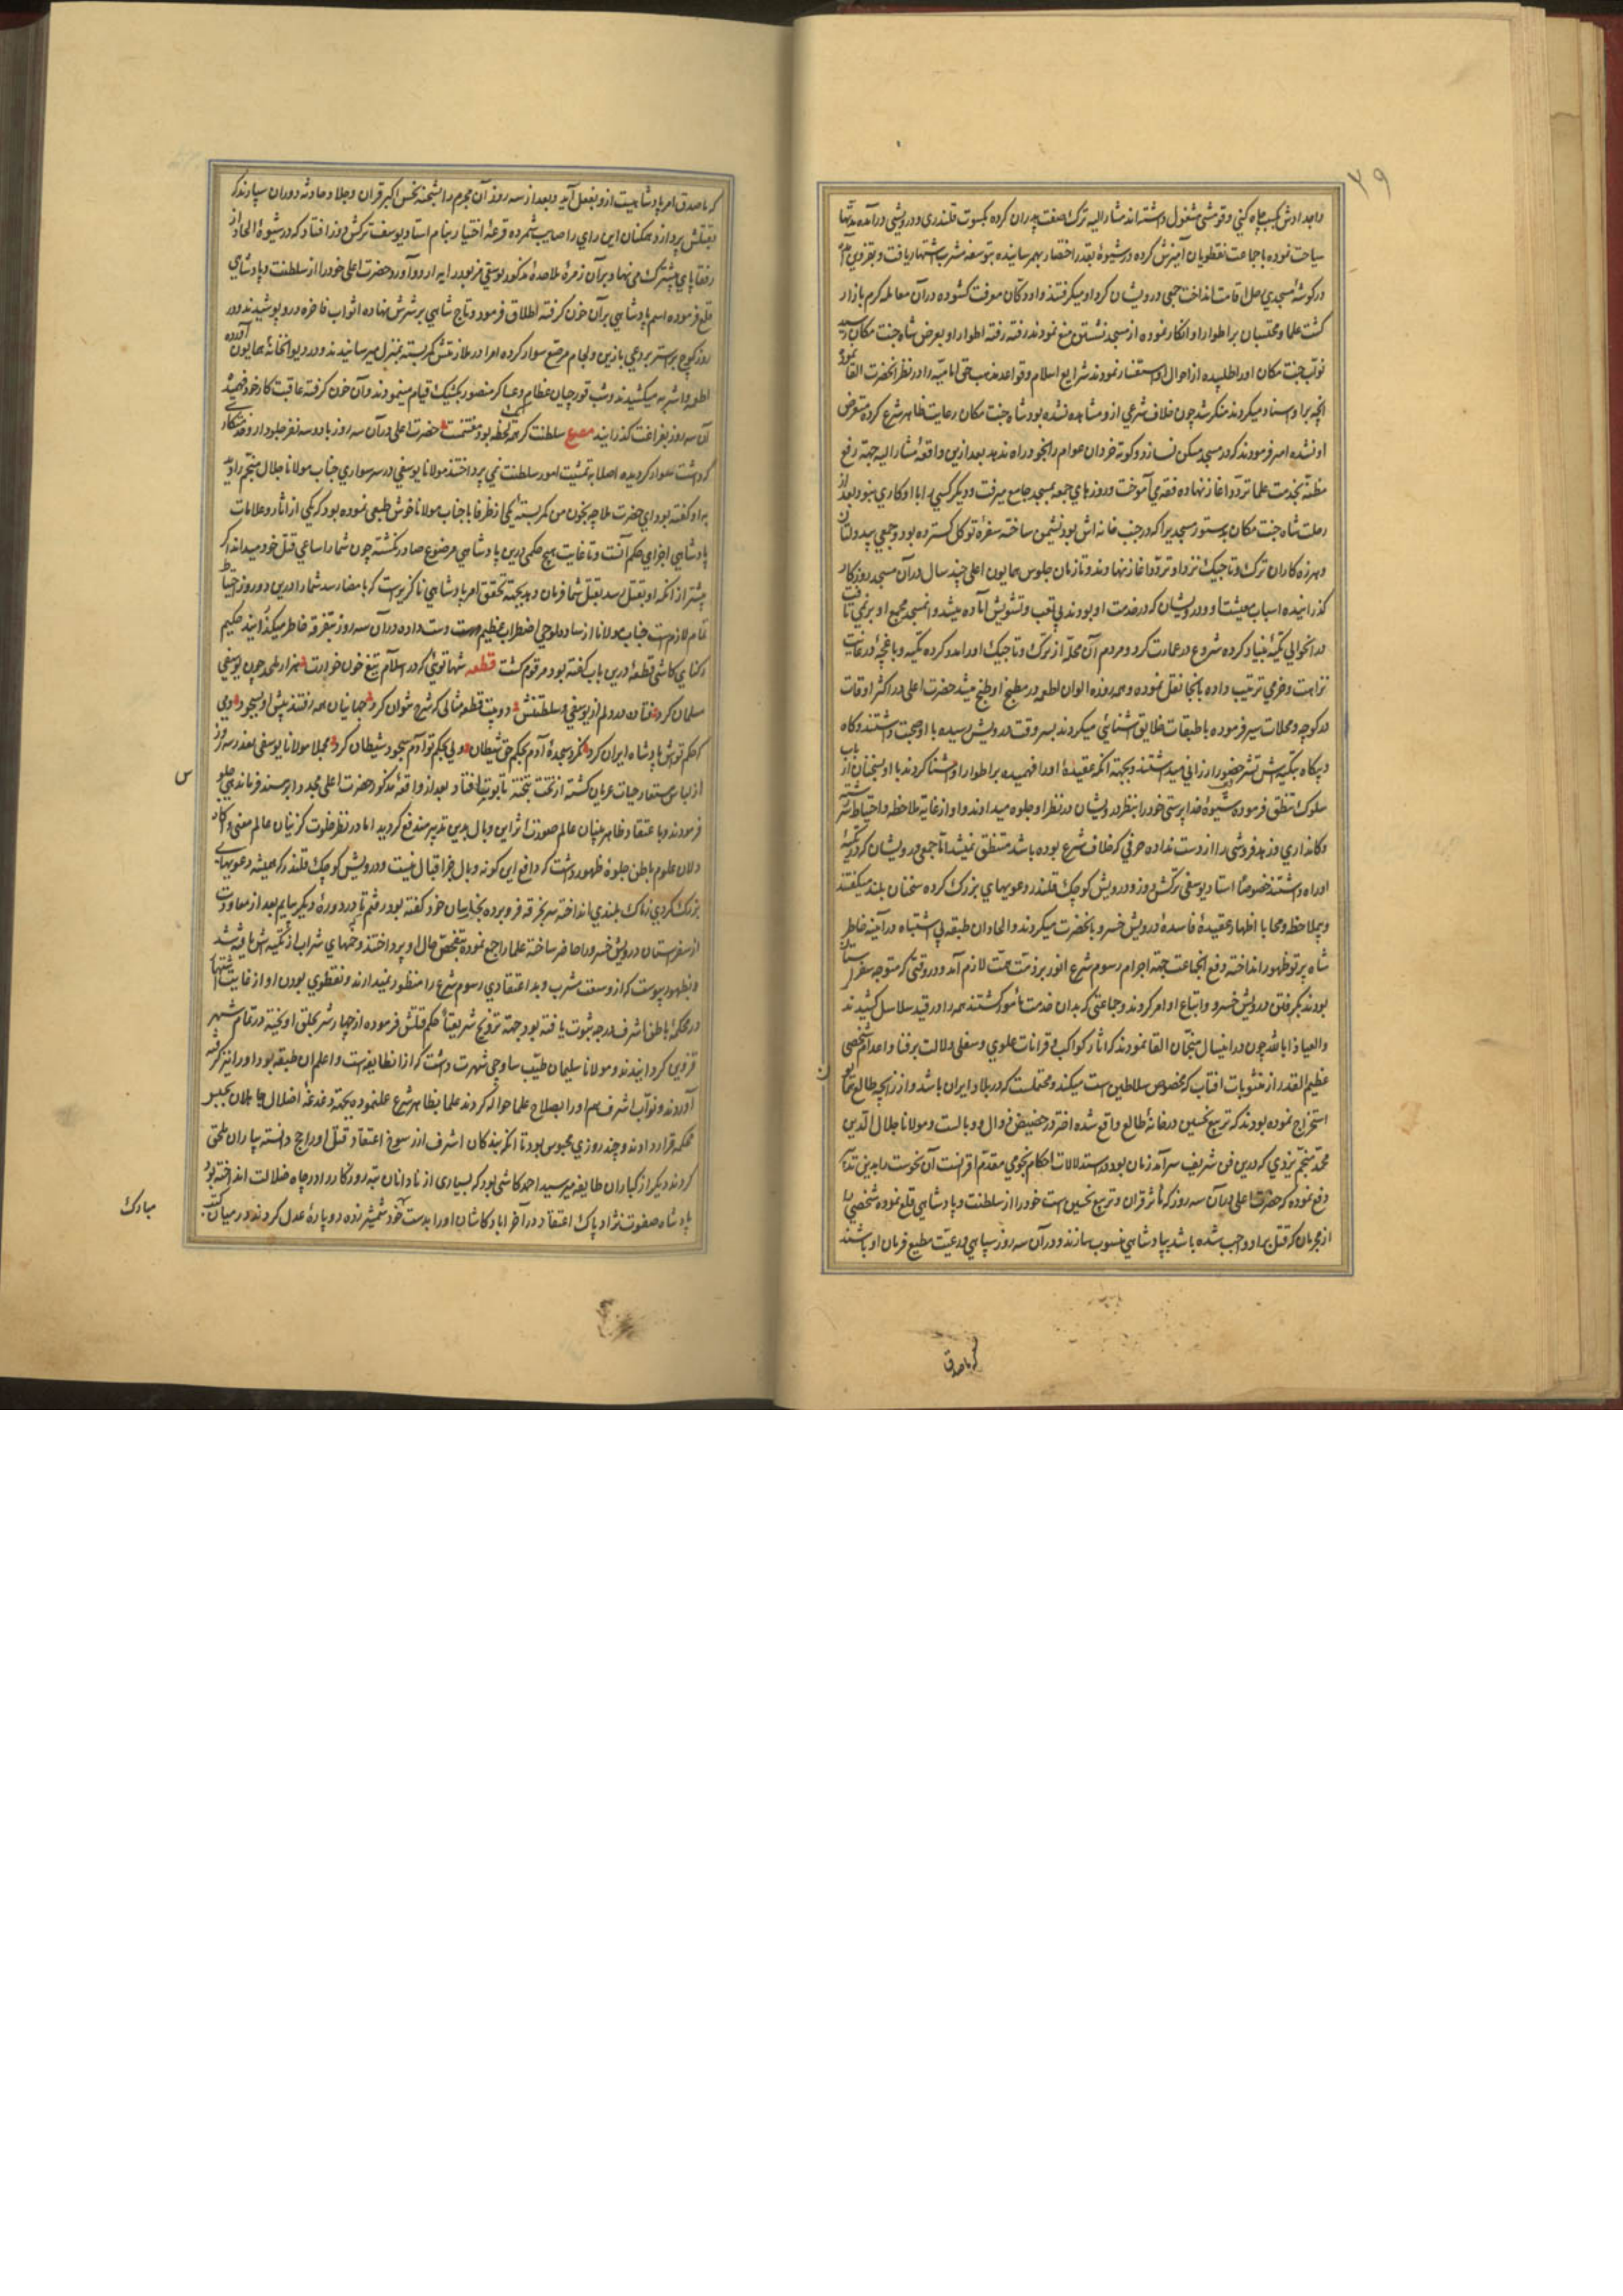 ۷۹
واجدادش بکسب چاه کنی و قومشی مشغول داشته اند مشار الیه ترک صنعت پدران کرده بکسوت قلندری و درویشی درآمده مدتها
سیاحت نموده با جماعت نقطویان آمیزش کرده در شیوهٔ بقدر احتضار بهم رسانیده بتوسعه مشرب اشتهار یافت و بقزوین آمده
در کوشهٔ مسجدی رحل اقامت انداخت جمعی درویشان کرد او میکرفتند و او دکان معرفت کشوده در آن معامله کرم بازار
کشت علما و محتسبان بر اطوار او انکار نموده از مسجد نشستن منع نمودند رفته رفته اطوار او بعرض شاه جنت مکان رسید
نواب جنت مکان او را طلبیده از احوال او استفسار نمودند شرایع اسلام و قواعد مذهب حق امامیه را در نظر انحضرت القا نموده
انچه بر او اسناد میکردند منکر شد چون خلاف شرعی ازو مشاهده نشده بود شاه جنت مکان رعایت ظاهر شرع کرده متعرض
او نشده امر فرمودند که در مسجد مسکن نسازد و کوته خردان عوام را نجود راه ندهد بعد ازین واقعه مشار الیه جهة رفع
مظنه بخدمت علما تردد آغاز نهاده فقه می آموخت و روزهای جمعه بمسجد جامع میرفت و دیکر کسی را با او کاری نبود بعد از
رحلت شاه جنت مکان بدستور مسجدیرا که در جنب خانه اش بود نشیمن ساخته سفرهٔ توکل کسترده بود و جمعی بیدولتان
و هرزه کاران ترک و تاجیک نزد او تردد آغاز نهادند و تا زمان جلوس همایون اعلی چند سال در آن مسجد روزکار
کذرانیده اسباب معیشت او و درویشان که در خدمت او بودند بی تعب و تشویش آماده میشد و انمسجد مجمع او بر نمی تافت
در انحوالی تکیهٔ بنیاد کرده شروع در عمارت کرد و مردم آن محله از ترک و تاجیک او امداد کرده تکیه و باغچهٔ در غایت
نزاهت و خرمی ترتیب داده بانجا نقل نموده و همه روزه الوان اطعمه در مطبخ او طبخ میشد حضرت اعلی در اکثر اوقات
در کوچه و محلات سیر فرموده با طبقات خلایق اشنائی میکردند بسر وقت درویش رسیده با او صحبت داشتند و کاه
و بیکاه بتکیه اش تشریف حضور ارزانی میداشتند و بجهة انکه عقیدهٔ او را فهمیده بر اطوار او آشنا کردند با او سخنان از باب
سلوک متنطق فرموده شیوهٔ خدا پرستی خود را بنظر درویشان در نظر او جلوه میدادند و او از غایة ملاحظه و احتیاط سررشته
دکانداری و زهد فروشی را از دست نداده حرفی که خلاف شرع بوده باشد متنطق نمیشد اما جمعی درویشان که در تکیه
او راه داشتند خصوصا استاد یوسفی ترکش دوز و درویش کوچک قلندر دعویهای بزرک کرده سخنان بلند میکفتند
و بیملاحظه و محابا اظهار عقیدهٔ فاسدهٔ درویش خسرو بانحضرت میکردند و الحاد ان طبقه بی اشتباه در آینه خاطر
شاه پرتو ظهور انداخته دفع انجماعت جهة اجرام رسوم شرع انور بر ذمت همت لازم آمد و در وقتی که متوجه سفر لرستان
بودند بکرفتن درویش خسرو و اتباع او امر کردند و جماعتی که بدان خدمت مامور کشتند همه را در قید سلاسل کشیدند
و العیاذ بالله چون در اینسال منجمان القا نمودند که اثار کواکب و قرانات علوی و سفلی دلالت بر فنا و اعدام شخصی
عظیم القدر از منسوبات افتاب که مخصوص سلاطین است میکند و محتملست که در بلاد ایران باشد و از زایچه طالع همایون
استخراج نموده بودند که تربیع نحسین در خانهٔ طالع واقع شده اختر در حضیض زوال و وبالست و مولانا جلال الدین
محمد منجم یزدی که درین فن شریف سرآمد زمان بود و در استدلالات احکام نجومی مقدم اقرانست آن نحوست را بدین تدبیر
دفع نموده که حضرت اعلی در آن سه روز که تاثیر قران و تربیع نحسین است خود را از سلطنت و پادشاهی خلع نموده شخصی را
از مجرمان که قتل بر او واجب شده باشد بپادشاهی منسوب سازند و در آن سه روز سپاهی و رعیت مطیع فرمان او باشند
که ما صدق
که ما صدق امر پادشاهیست ازو بفعل آید و بعد از سه روز آن مجرم را بشحنه نحس اکبر قران و جلاد حادثه دوران سپارند که
بقتلش پردازد همکنان این رای را صایب شمرده قرعهٔ اختیار بنام استاد یوسف ترکش دوز افتاد که در شیوهٔ الحاد از
رفقا پای پیشترک می نهاد بر آن زمرهٔ ملاحدهٔ مذکور یوسفی مزبور را باردو آورد حضرت اعلی خود را از سلطنت و پادشاهی
خلع فرموده اسم پادشاهی بر آن خون کرفته اطلاق فرمود و تاج شاهی بر سرش نهاده اثواب فاخره در و پوشیدند و در
روز کوچ بر استر بردعی با زین و لجام مرصع سوار کرده امرا در ملازمتش کمر بسته بمنزل میرسانیدند و در دیوانخانهٔ همایون آورده
اطعمه و اشربه میکشیدند و شب قورچیان عظام و عساکر منصور بکشیک قیام مینمودند و آن خون کرفته عاقبت کار خود فهمیده
آن سه روز بفراغت کذرانید مصرع سلطنت کر همه یک لحظه بود مغتنمست حضرت اعلی در آن سه روز با دو سه نفر جلودار و خدمتکار
کردشت سوار کردیده اصلا به تمشیت امور سلطنت نمی پرداختند مولانا یوسفی در سر سواری جناب مولانا جلال منجم را دیده
باو کفته بود ای حضرت ملا چه بخون من کمر بستهٔ یکی از ظرفا با جناب مولانا خوش طبعی نموده بود که یکی از اثار و علامات
پادشاهی اجرای حکم آنست و تا غایت هیچ حکمی درین پادشاهی موضوع صادر نکشته چون شما را ساعی قتل خود میداند اکر
پیشتر از انکه او بقتل رسد بقتل شما فرمان دهد بجهة تحقق امر پادشاهی ناکزیر است که بامضا رسد شما را درین دو روز احتیاط
تمام لازم است جناب مولانا از ساده لوحی اضطراب عظیم دست داده در آن سه روز بتفرقه خاطر میکذرانید حکیم
رکنای کاشی قطعهٔ درین باب کفته بود مرقوم کشت قطعه شها توئی که در اسلام تیغ خون خوارت هزار ملحد چون یوسفی
مسلمان کرد فتاده در دلم از یوسفی و سلطنتش دو بیت قطعه مثالی که شرح نتوان کرد جهانیان همه رفتند پیش او بسجود دمی
که حکم توش پادشاه ایران کرد نکرد سجدهٔ آدم بحکم حق شیطان ولی بحکم تو آدم سجود شیطان کرد مجملا مولانا یوسفی بعد از سه روز
از لباس مستعار حیات عریان کشته از تخت بتختهٔ تابوت افتاد بعد از واقعهٔ مذکور حضرت اعلی مجدد بر مسند فرماندهی جلوس
فرمودند و با عتقاد ظاهر بینان عالم صورت اثر این وبال بدین تدبیر مندفع کردید اما در نظر خلوت کزینان عالم معنی و کار
دلان علوم باطن جلوهٔ ظهور داشت که دافع این کونه وبال بجز اقبال نیست و درویش کوچک قلندر که همیشه دعویهای
بزرک کردی تریاک بلندی انداخته سر بخرقه فرو برده بنجابیان خود کفته بود رفتیم تا در دورهٔ دیکر بیایم بعد از معاودت
از سفر لرستان درویش خسرو را حاضر ساخته علما را جمع نموده بتفحص حال او پرداختند و خمهای شراب از تکیه اش ظاهر شد
و بظهور پیوست که از وسعت مشرب و بد اعتقادی رسوم شرع را منظور نمیدارند و نقطوی بودن او از غایت اشتهار
در محکمهٔ باطن اشرف درجه ثبوت یافته بود جهة ترویج شریعت حکم قتلش فرموده از جهاز شتر بحلق آویخته در تمام شهر
قزوین کردانیدند و مولانا سلیمان طبیب ساوجی شهرت داشت که از انطایفه است و اعلم ان طبقه بود او را نیز کرفته
آوردند و نواب اشرف مهم او را بصلاح علما حواله کردند علما بظاهر شرع عمل نموده بجهة دغدغهٔ اضلال جاهلان بحبس
محکمه قرار دادند و چند روزی محبوس بود تا انکه بندکان اشرف از رسوخ اعتقاد قتل او را راجح دانسته بیاران ملحق
کردند دیکر از کباران طایفه میر سید احمد کاشی بود که بسیاری از نادانان تبه روزکار را در چاه ضلالت انداخته بود
پادشاه صفوت نژاد پاک اعتقاد در آخر اباد کاشان او را بدست خود شمشیر زده دو پارهٔ عدل کردند و در میان کتب
مبارک